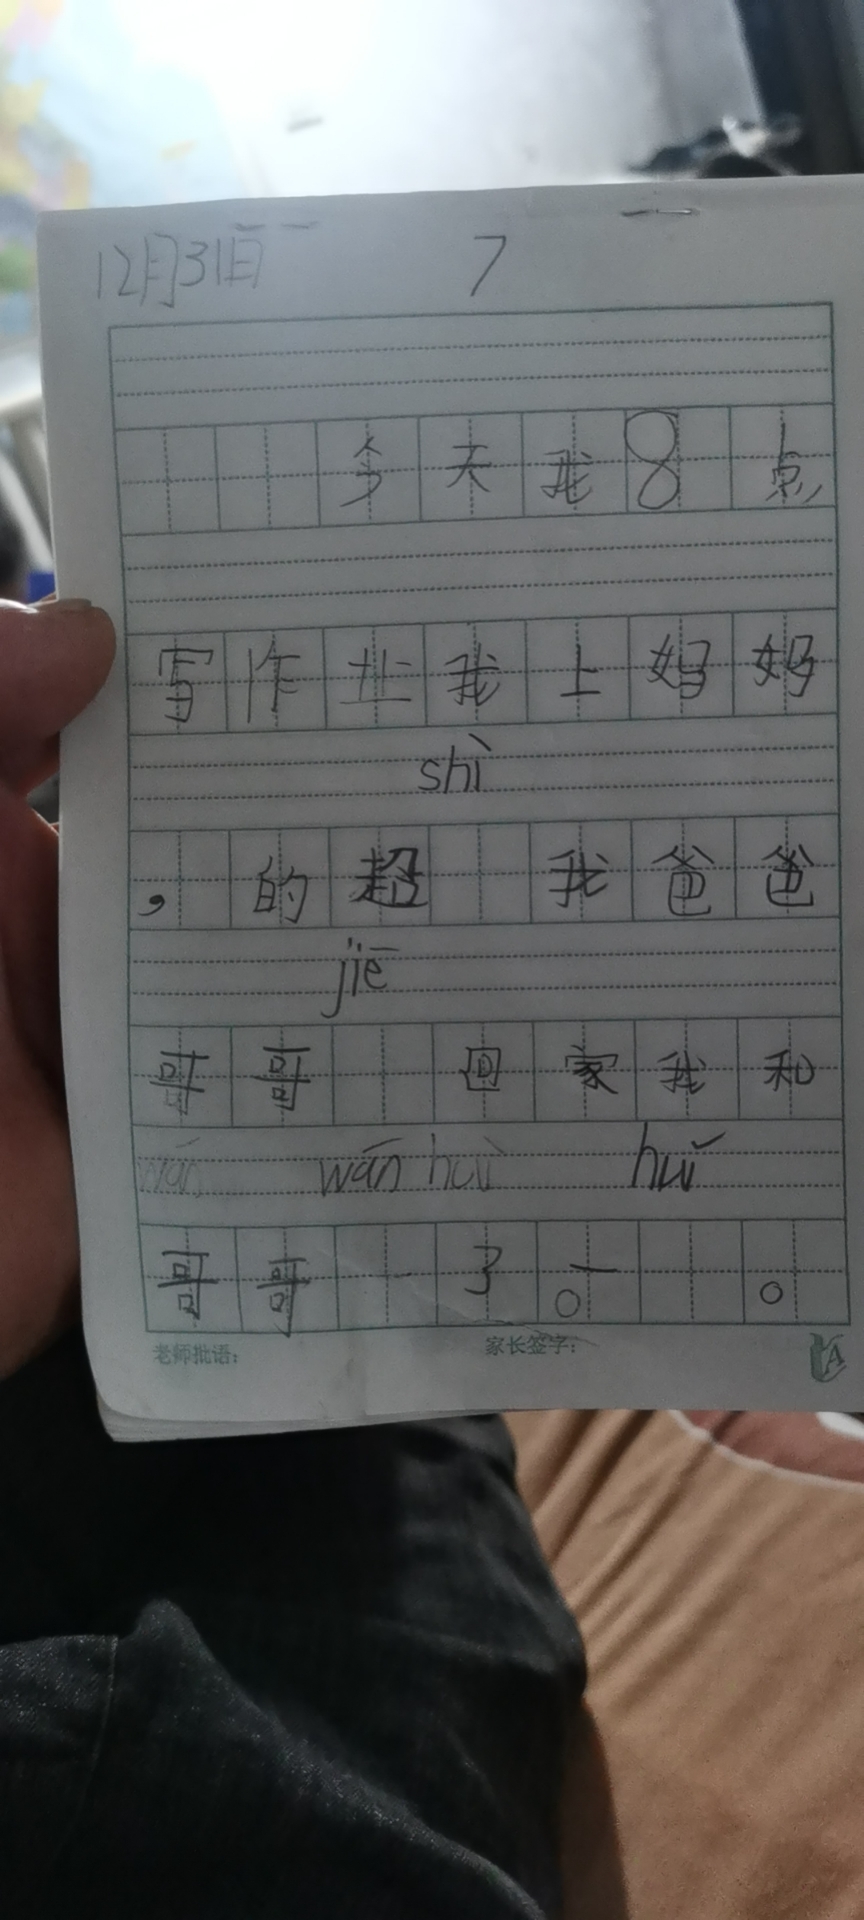 12月31日 一 7
今天我8点
写作业我上妈妈
shì
，的超 我爸爸
jiē
哥哥 回家我和
wán wán huì huǐ
哥哥 一 3 一 。 。
老师批语： 家长签字：